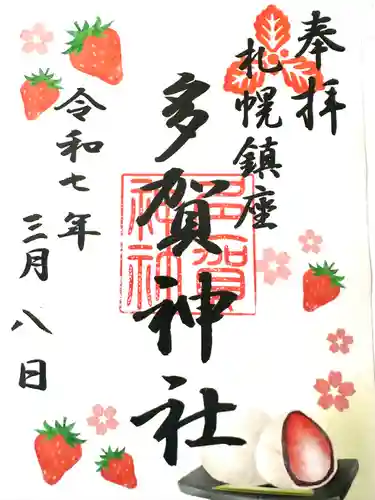 奉拝
札幌鎮座
多賀神社
多賀神社
令和七年
三月八日